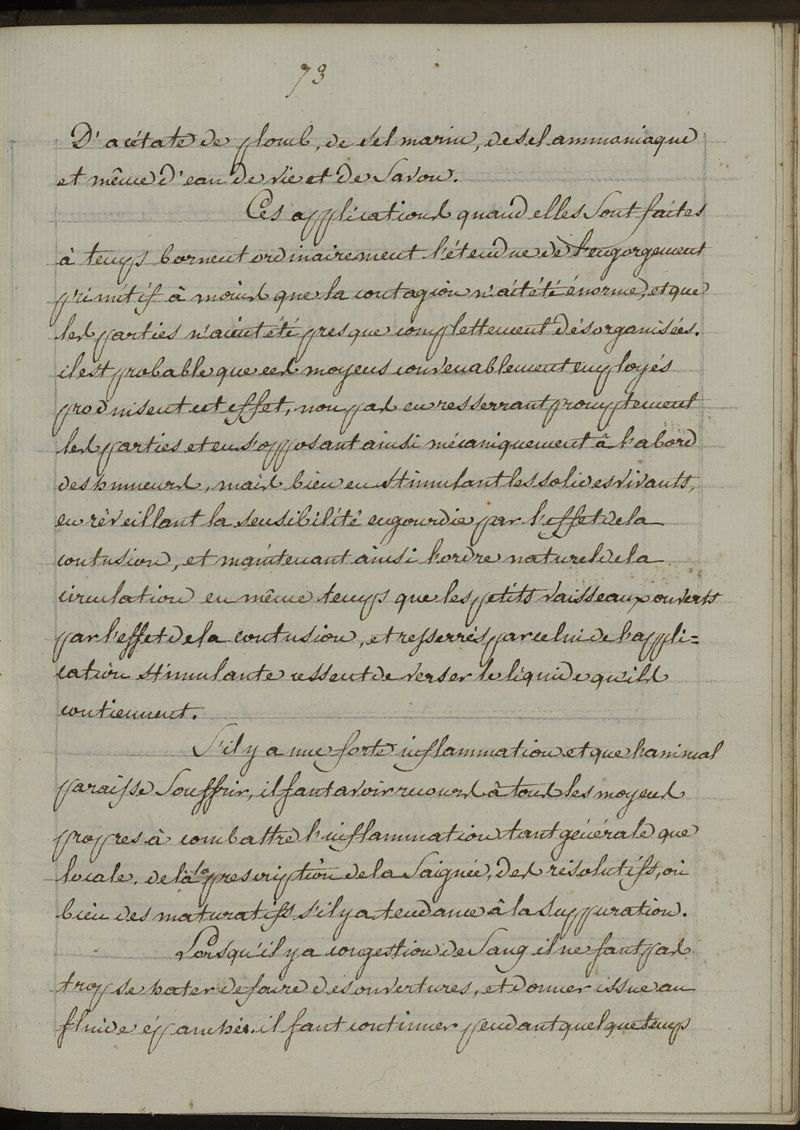 73
D'acétate de plomb, de sel marin, de sel ammoniaque
et même d'eau de vie et de Savon.
Ces applications quand elles Sont faites
à temps bornent ordinairement l'étendue de l'engorgement
primitif à moins que la contagion n'ait été énorme, et que
les parties n'aient été presque complettement désorganisées.
il est probable que ces moyens convenablement employés
produisent cet effet, non pas en resserrant promptement
les parties et en s'opposant ainsi mécaniquement à l'abord
des humeurs, mais bien en stimulant les solides vivants,
en réveillant la sensibilité engourdie par l'effet de la
contusion, et maintenant ainsi l'ordre naturel de la
circulation en même temps que les petits vaisseaux ouverts
par l'effet de la contusion, et resserrés par celui de l'appli=
cation stimulante cessent de verser le liquide qu'ils
contiennent.
S'il y a une forte inflammation et que l'animal
paraisse Souffrir, il faut avoir recours à tous les moyens
propres à combattre l'inflammation tant générale que
locale. de là la prescription de la Saignée, des résolutifs, où
bien des maturatifs s'il y a tendance à la Suppuration.
Lorsqu'il y a congestion de Sang il ne faut pas
trop se hater de faire des ouvertures, et donner issue au
fluide épanché. il faut continuer pendant quelque temps